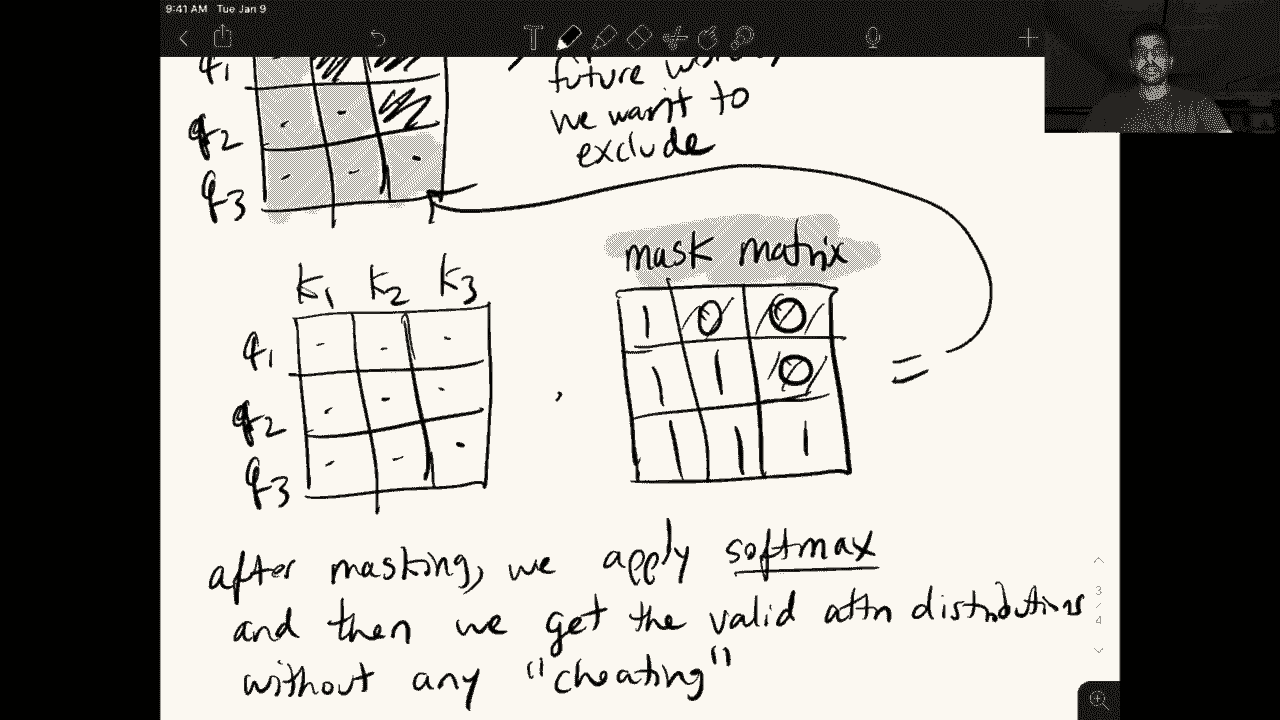 9:41 AM Tue Jan 9
q1
future
we want to
q2
exclude
q3
mask matrix
K1 K2 K3
q1 - - -
1 0 0
q2 - - -
1 1 0 =
q3 - - -
1 1 1
after masking, we apply softmax
and then we get the valid attn distributions
without any "cheating"
3
/
4